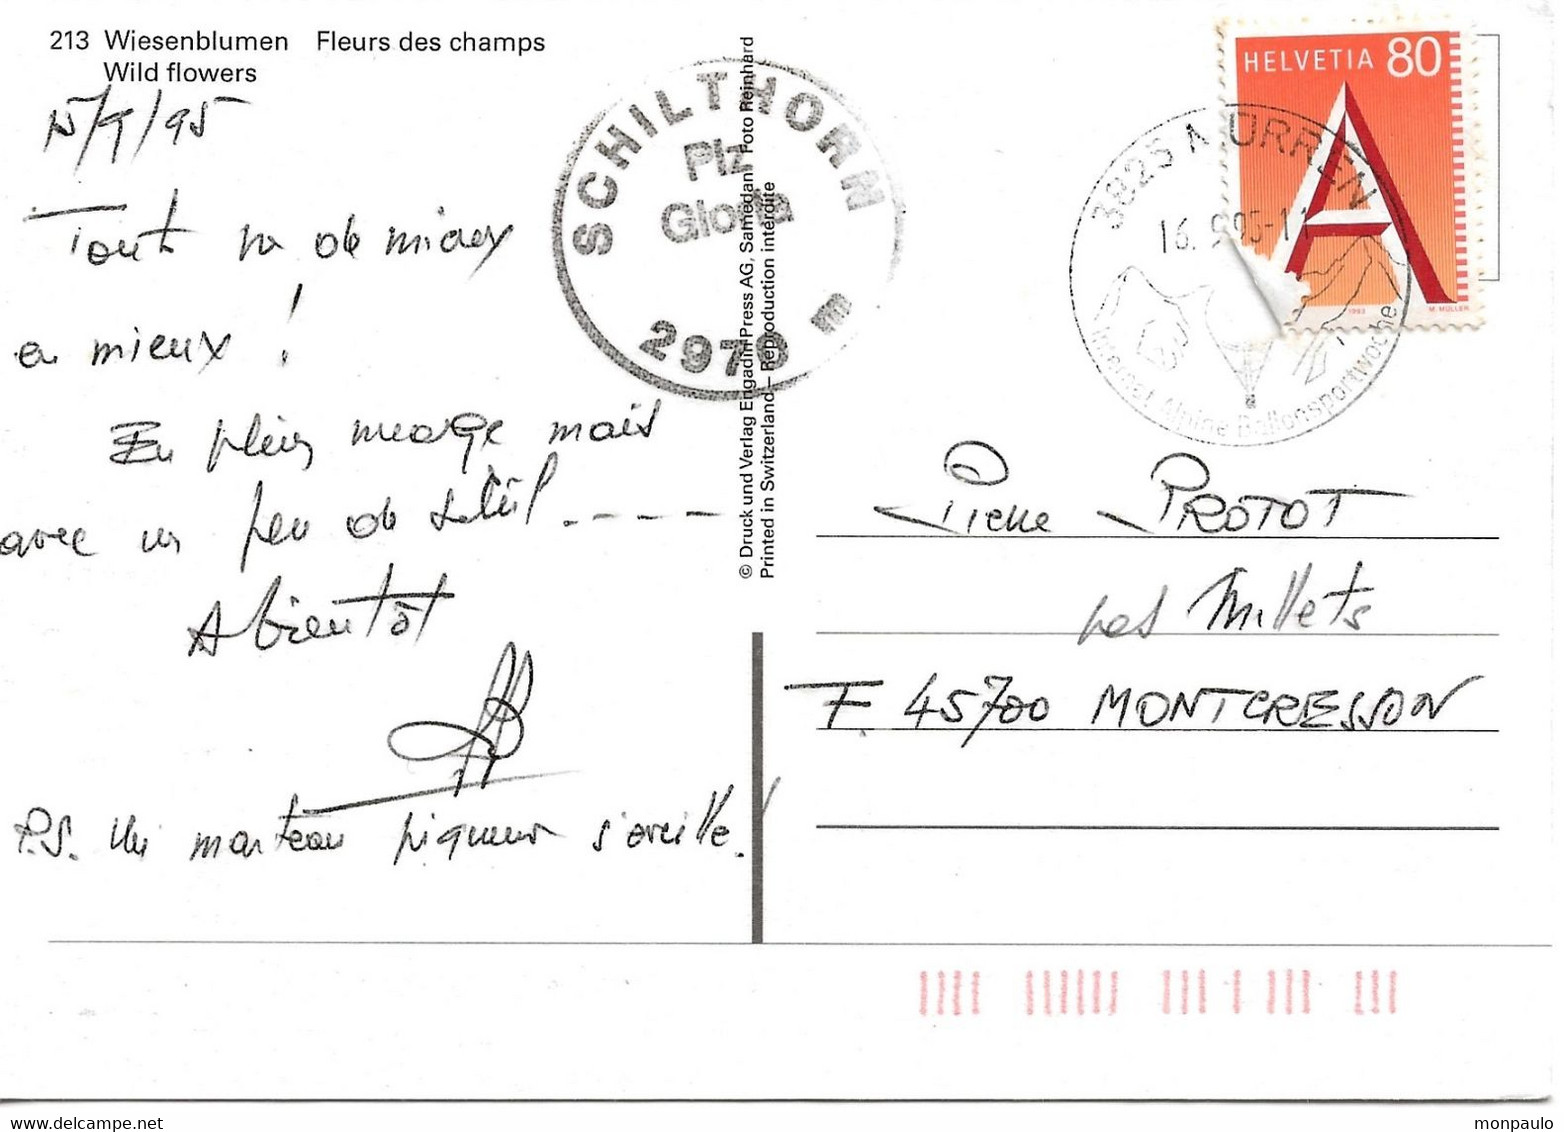 213 Wiesenblumen Fleurs des champs
Wild flowers
15/9/95
Tout va de mieux
en mieux !
En plein nuage mais
avec un peu de soleil.----
A bientôt
P.S. Un marteau piqueur s'oreille!
SCHILTHORN
Piz
Gloria
2970 E
© Druck und Verlag Engadin Press AG, Samedan Foto Reinhard
Printed in Switzerland – Reproduction interdite
HELVETIA 80
A
1993 M. MÜLLER
3825 MÜRREN
16.9.95-11
Internat. Alpine Ballonsportwoche
Pierre PROTOT
Les Millets
F. 45700 MONTCRESSON
monpaulo